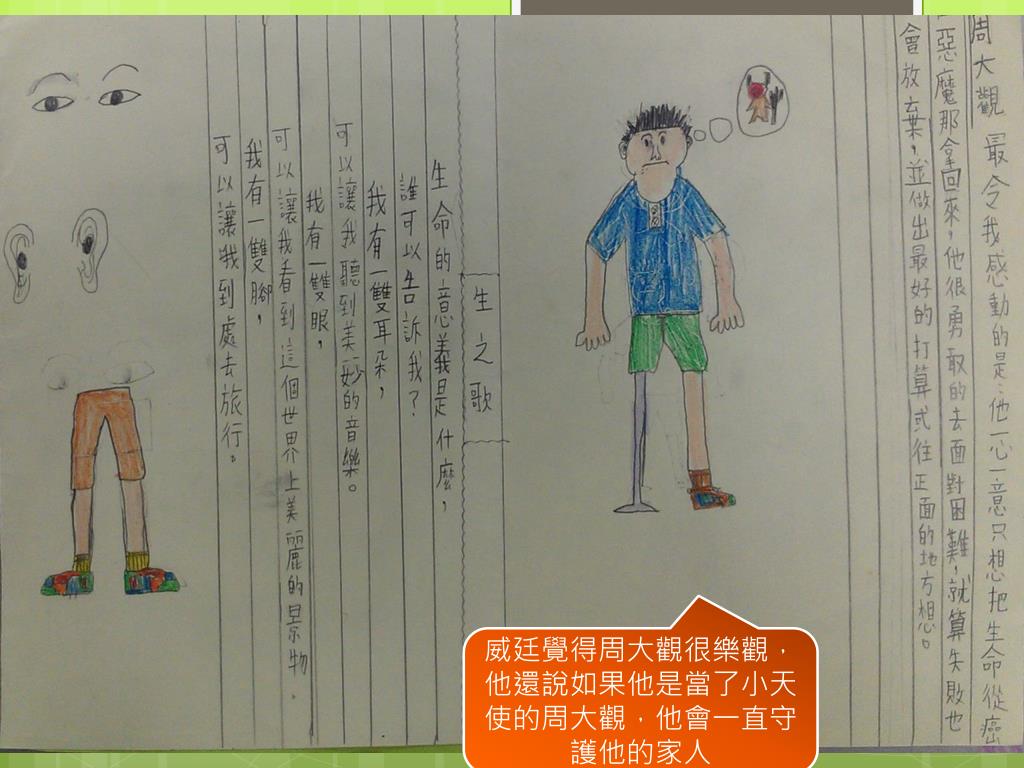 周大觀最令我感動的是:他一心一意只想把生命從癌
惡魔那拿回來,他很勇敢的去面對困難,就算失敗也
會放棄,並做出最好的打算或往正面的地方想。
生之歌
生命的意義是什麼,
誰可以告訴我?
我有一雙耳朵,
可以讓我聽到美妙的音樂。
我有一雙眼,
可以讓我看到這個世界上美麗的景物.
我有一雙腳,
可以讓我到處去旅行。
威廷覺得周大觀很樂觀,
他還說如果他是當了小天
使的周大觀,他會一直守
護他的家人